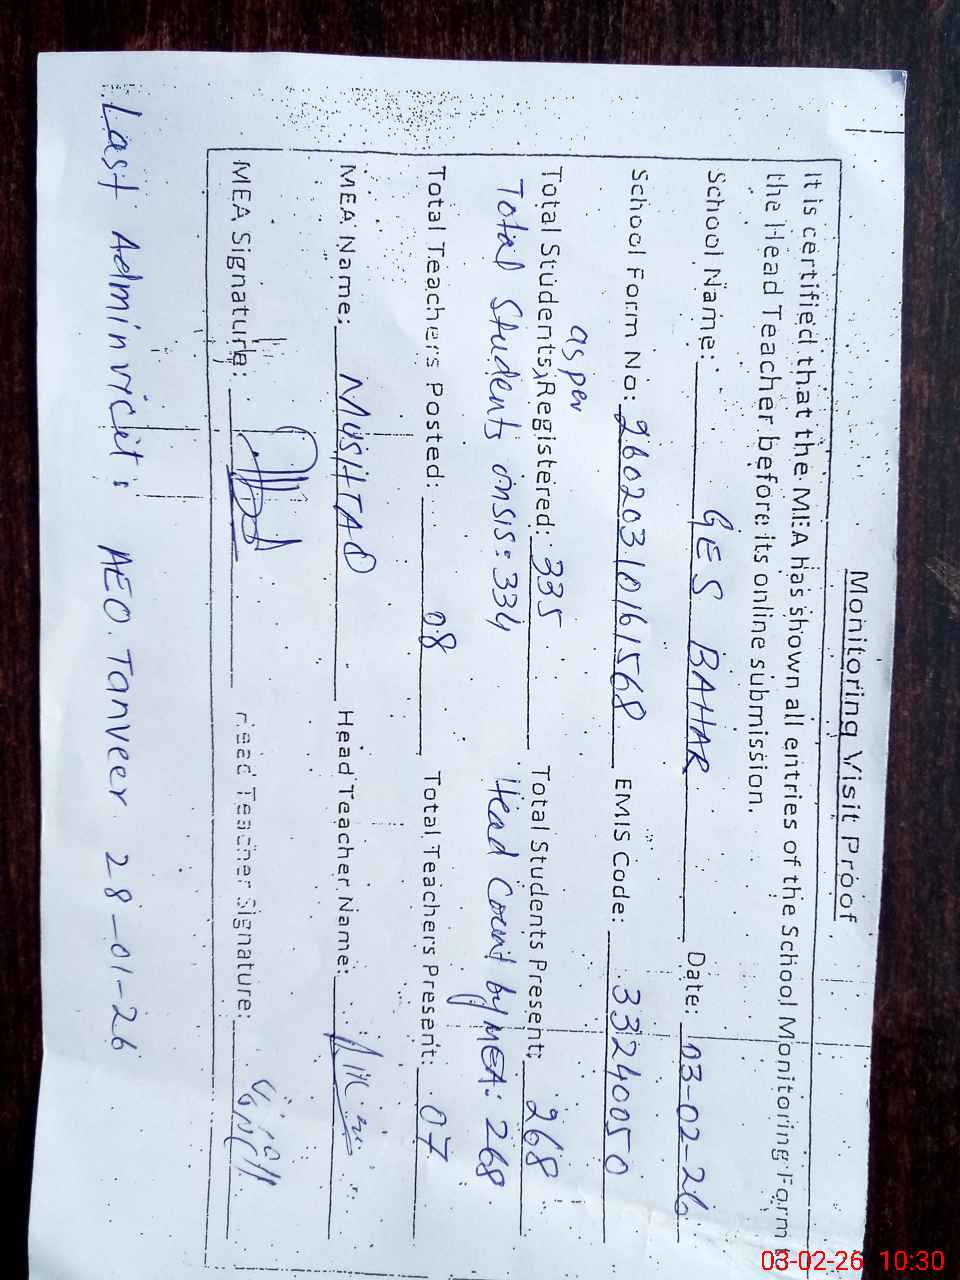 Monitoring Visit Proof
It is certified that the MEA has shown all entries of the School Monitoring Form
the Head Teacher before its online submission.
School Name: GES BAHAR Date: 03-02-26
School Form No: 2602031016 1568 EMIS Code: 33240050
as per
Total Students Registered: 335 Total Students Present: 268
Total Students onsis: 334 Head Count by MEA: 268
Total Teachers Posted: 08 Total Teachers Present: 07
MEA Name: MUSHTAQ Head Teacher Name:
MEA Signature: Head Teacher Signature:
Last Admin vicit: AEO. Tanveer 28-01-26
03-02-26 10:30